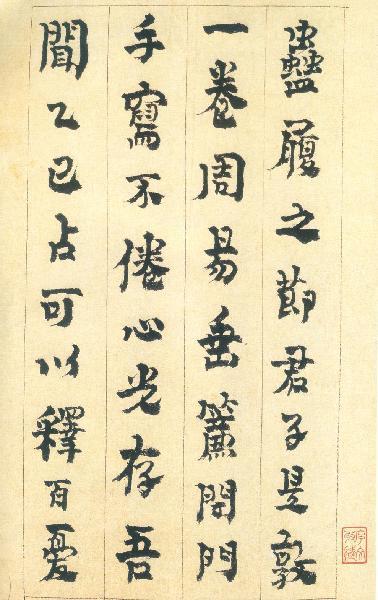 蠱履之節君子是敦
一卷周易垂簾閉門
手寫不倦心光存吾
聞乙巳占可以釋百憂